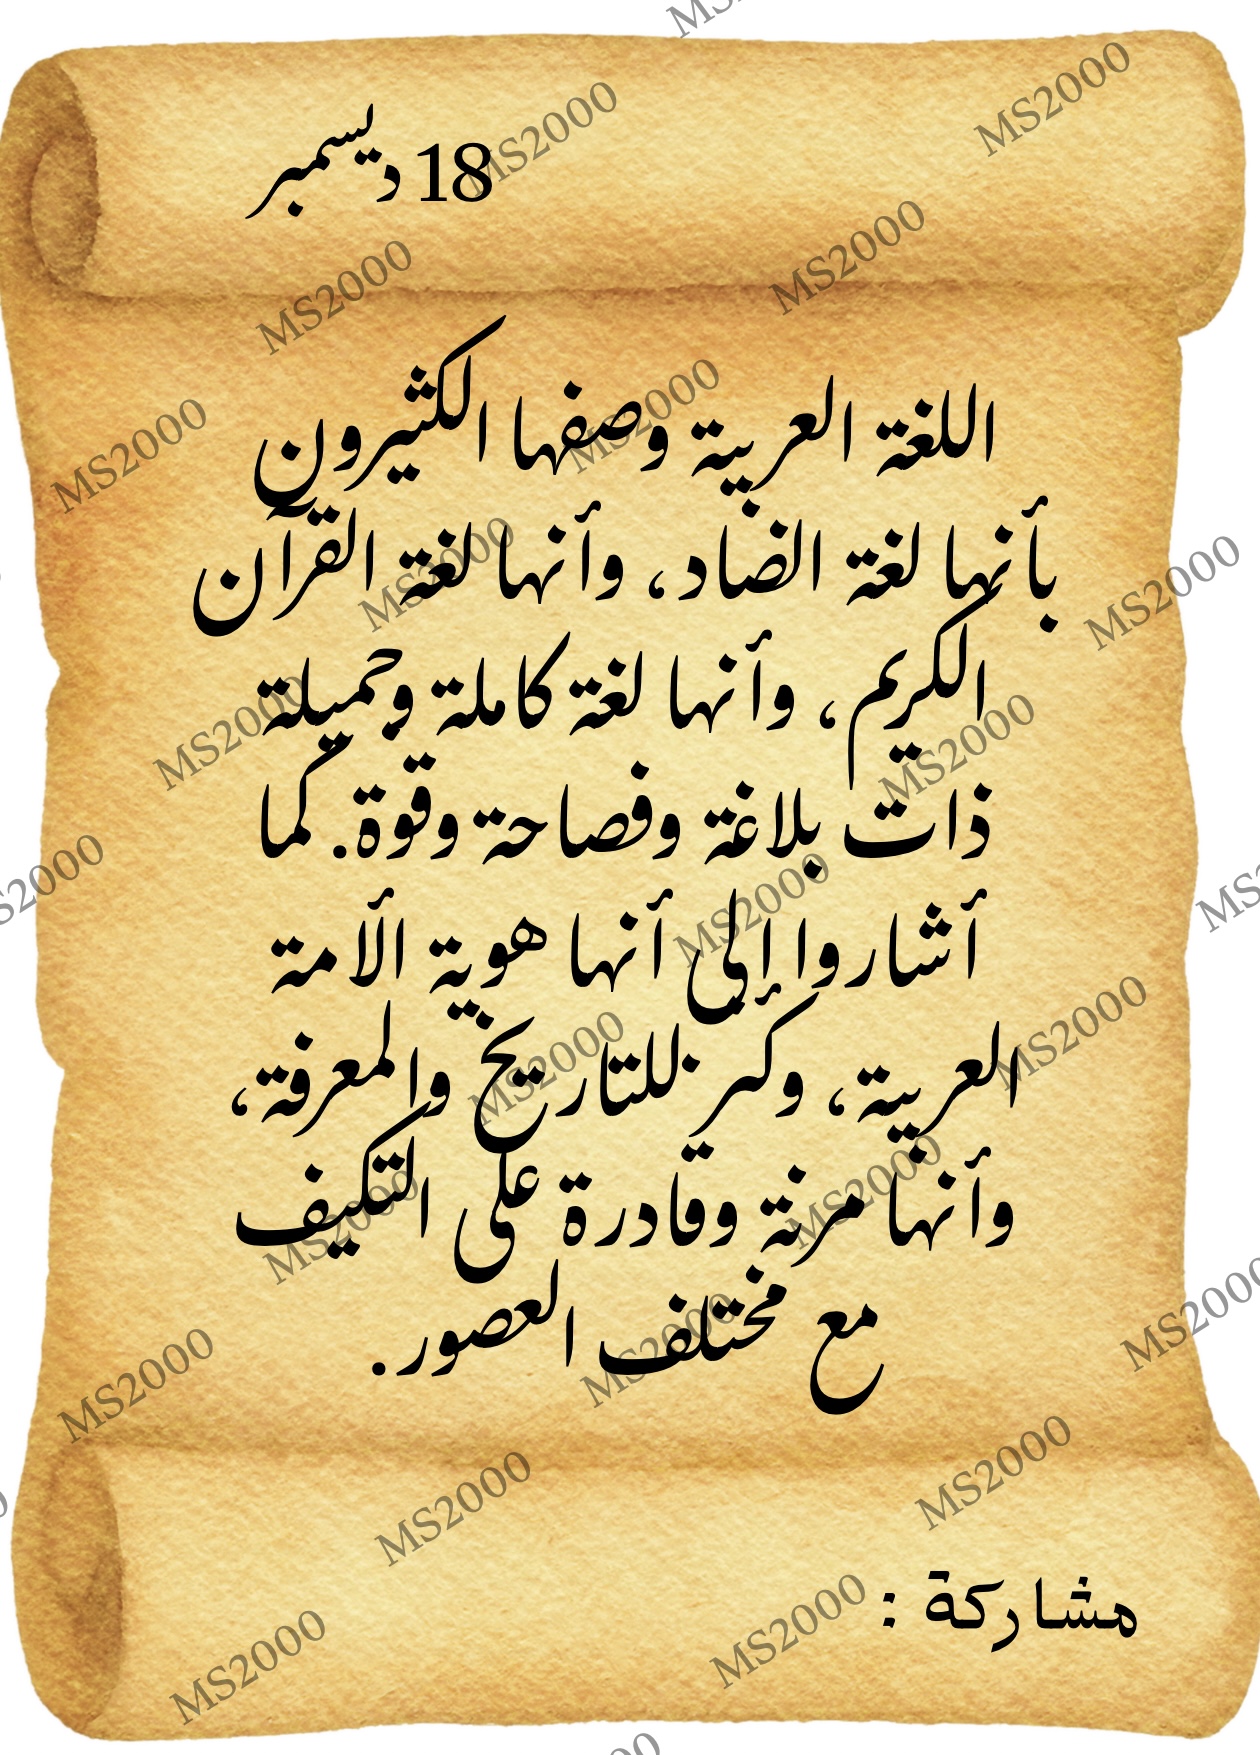 18 ديسمبر
اللغة العربية وصفها الكثيرون
بأنها لغة الضاد، وأنها لغة القرآن
الكريم، وأنها لغة كاملة وجميلة
ذات بلاغة وفصاحة وقوة. كما
أشاروا إلى أنها هوية الأمة
العربية، وكنز للتاريخ والمعرفة،
وأنها مرنة وقادرة على التكيف
مع مختلف العصور.
مشاركة :
MS2000